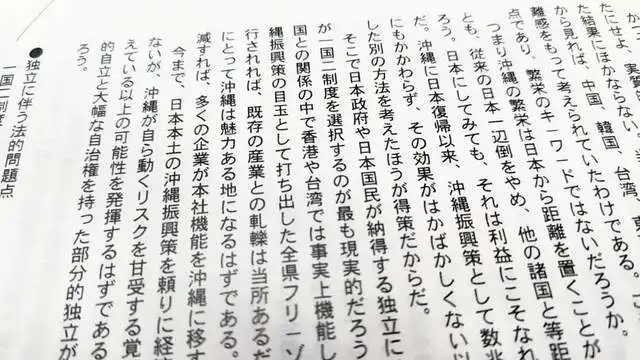 たにせよ、実質
た結果にほかならない。
から見れば、中国、韓国、台湾、東
難感をもって考えられていたわけである。
点であり、繁栄のキーワードではないだろうか。
つまり沖縄の繁栄は日本から距離を置くことが
とも、従来の日本一辺倒をやめ、他の諸国と等距
ろう。日本にしてみても、それは利益にこそなれ
だ。沖縄に日本復帰以来、沖縄振興策として数兆
にもかかわらず、その効果がはかばかしくない以
した別の方法を考えたほうが得策だからだ。
そこで日本政府や日本国民が納得する独立に
が一国二制度を選択するのが最も現実的だろう
国との関係の中で香港や台湾では事実上機能し
縄振興策の目玉として打ち出した全県フリーゾ
行されれば、既存の産業との軋轢は当所あるだ
にとって沖縄は魅力ある地になるはずである。
減すれば、多くの企業が本社機能を沖縄に移す
今まで、日本本土の沖縄振興策を頼りに経
ないが、沖縄が自ら動くリスクを甘受する覚
えている以上の可能性を発揮するはずである
的自立と大幅な自治権を持った部分的独立が
ろう。
●独立に伴う法的問題点
一国二制度